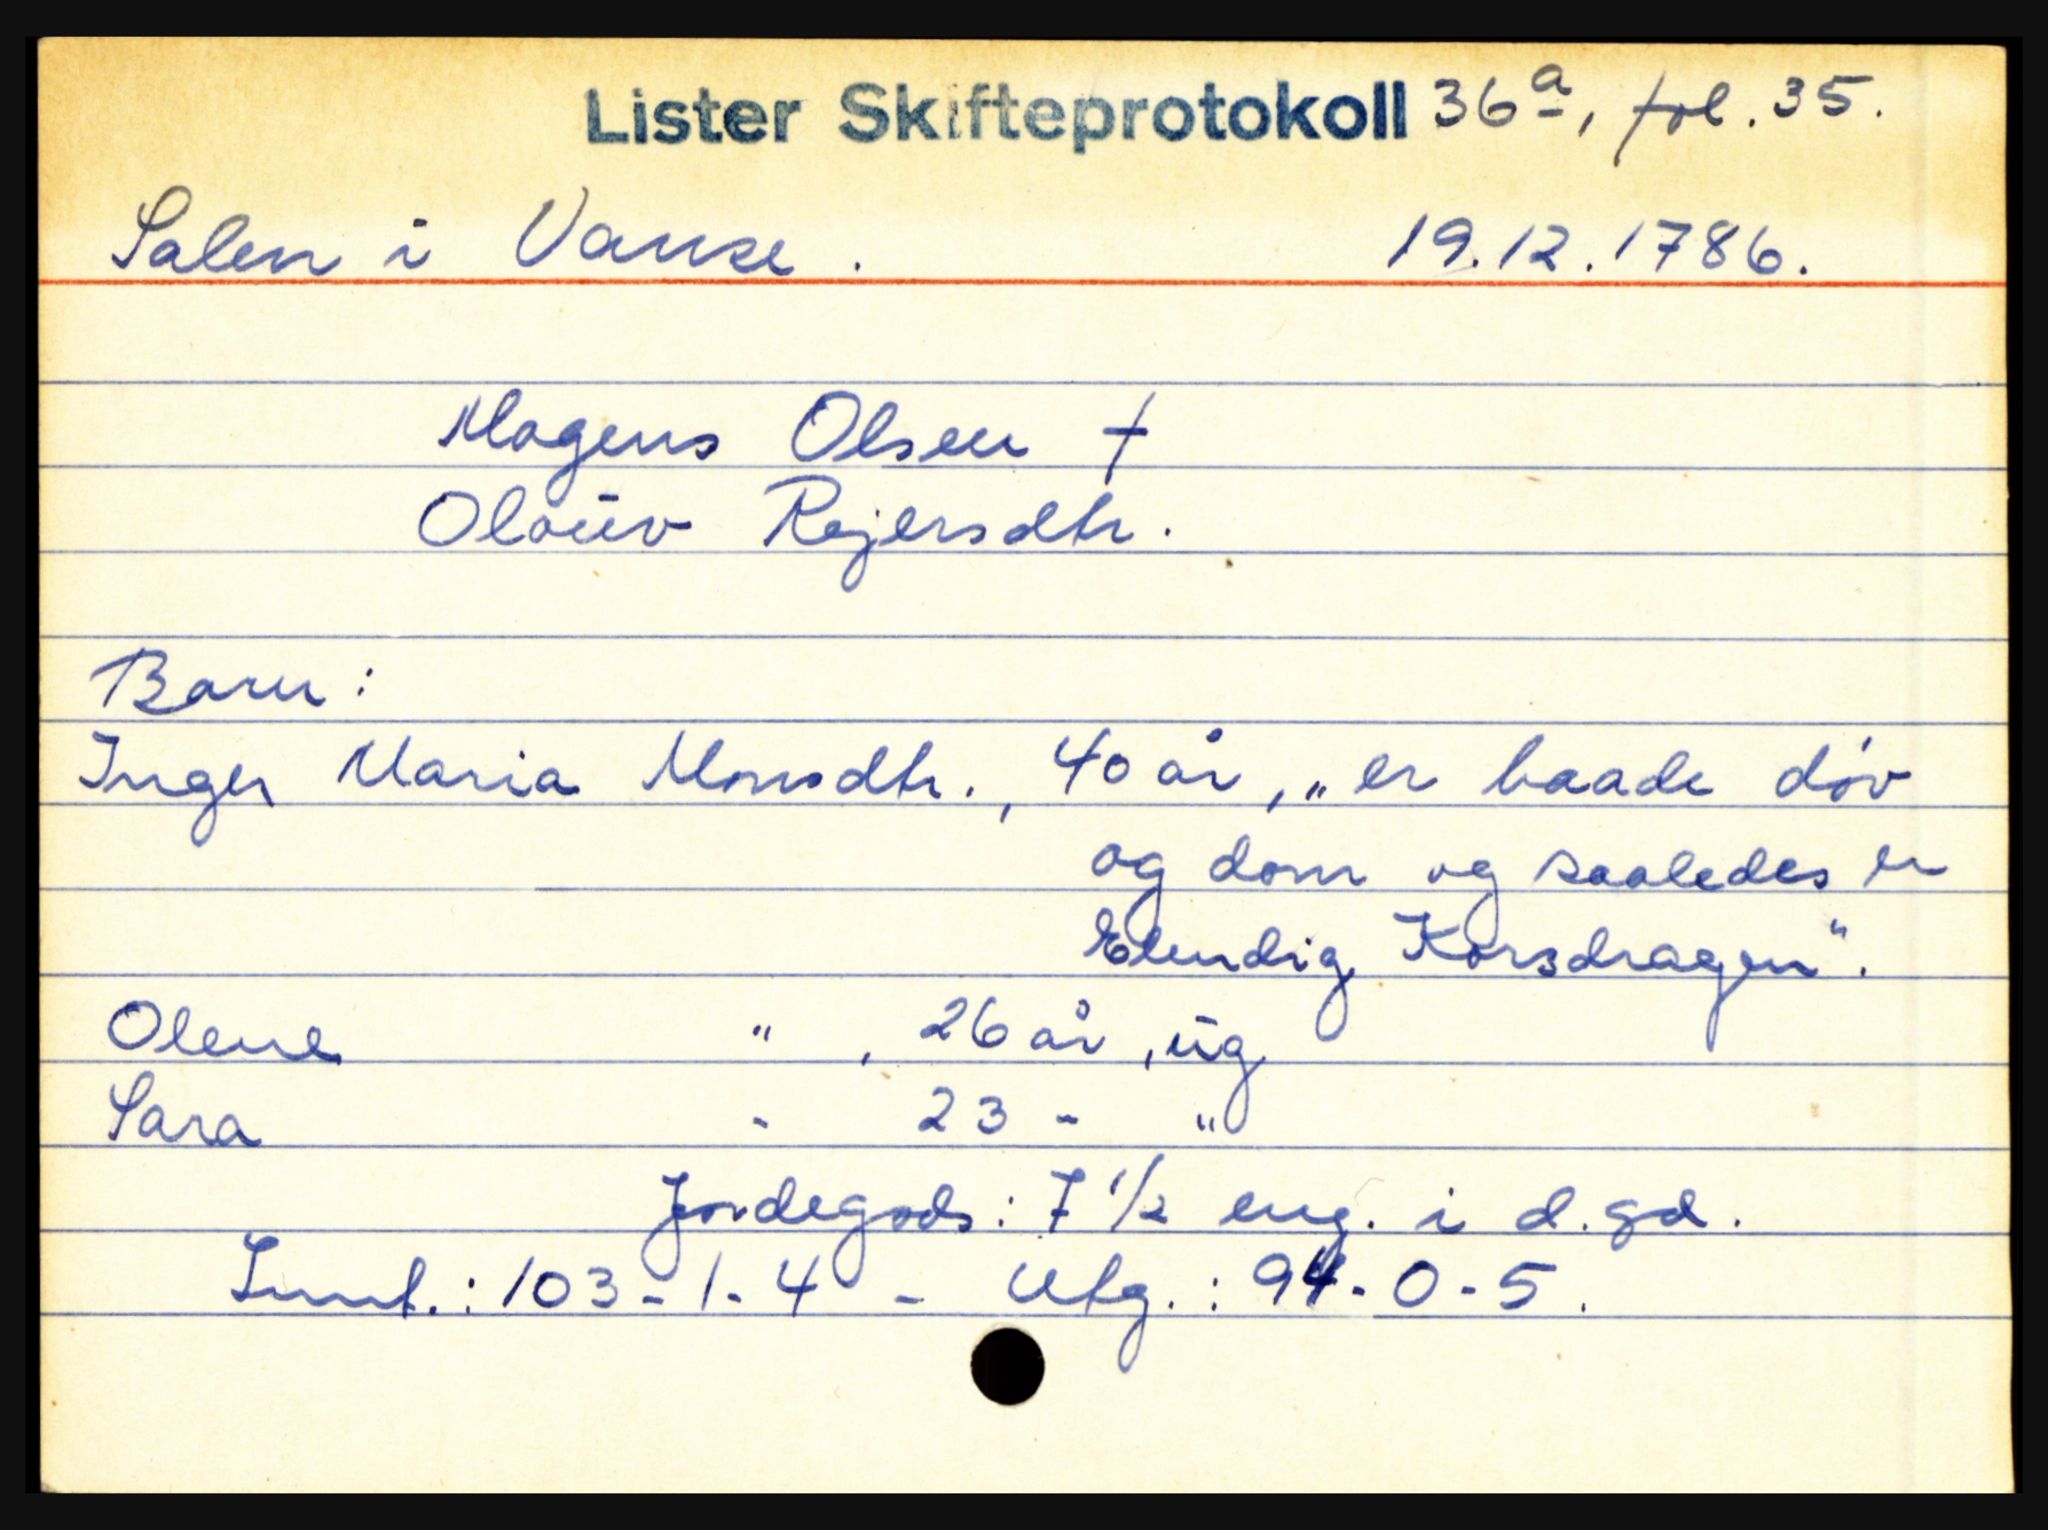 Lister Skifteprotokoll 36a, fol. 35.
Salen i Vanse. 19.12.1786.
Mogens Olsen †
Oloüv Rejersdtr.
Barn:
Inger Maria Monsdtr., 40 år, „er baade døv
og dom og saaledes en
Elendig Korsdragen".
Olene " , 26 år, üg
Sara - 23 - "
Jordegods: 7 1/2 eng. i d. gd.
Innt.: 103-1-4 - Utg.: 94-0-5.